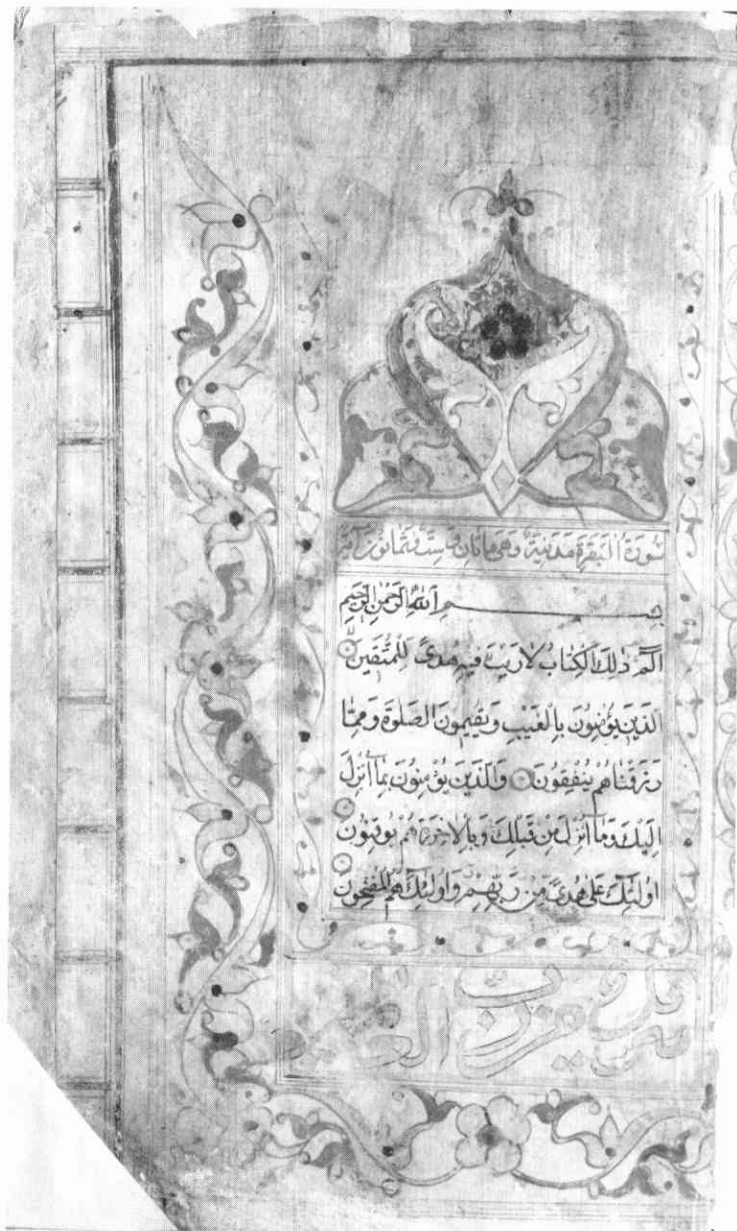 سُورَةُ الْبَقَرَةِ مَدَنِيَّةٌ وَهِيَ مِاتَانِ وَسِتٌّ وَثَمَانُونَ آيَةً
بِسْــــــــــمِ اللَّهِ الرَّحْمٰنِ الرَّحِيمِ
الٓمّٓ ذٰلِكَ الْكِتَابُ لَا رَيْبَ فِيهِ هُدًى لِلْمُتَّقِينَ
الَّذِينَ يُؤْمِنُونَ بِالْغَيْبِ وَيُقِيمُونَ الصَّلٰوةَ وَمِمَّا
رَزَقْنَاهُمْ يُنْفِقُونَ وَالَّذِينَ يُؤْمِنُونَ بِمَا أُنْزِلَ
إِلَيْكَ وَمَا أُنْزِلَ مِنْ قَبْلِكَ وَبِالْآخِرَةِ هُمْ يُوقِنُونَ
أُولٰئِكَ عَلَىٰ هُدًى مِنْ رَبِّهِمْ وَأُولٰئِكَ هُمُ الْمُفْلِحُونَ
تنزيل من رب